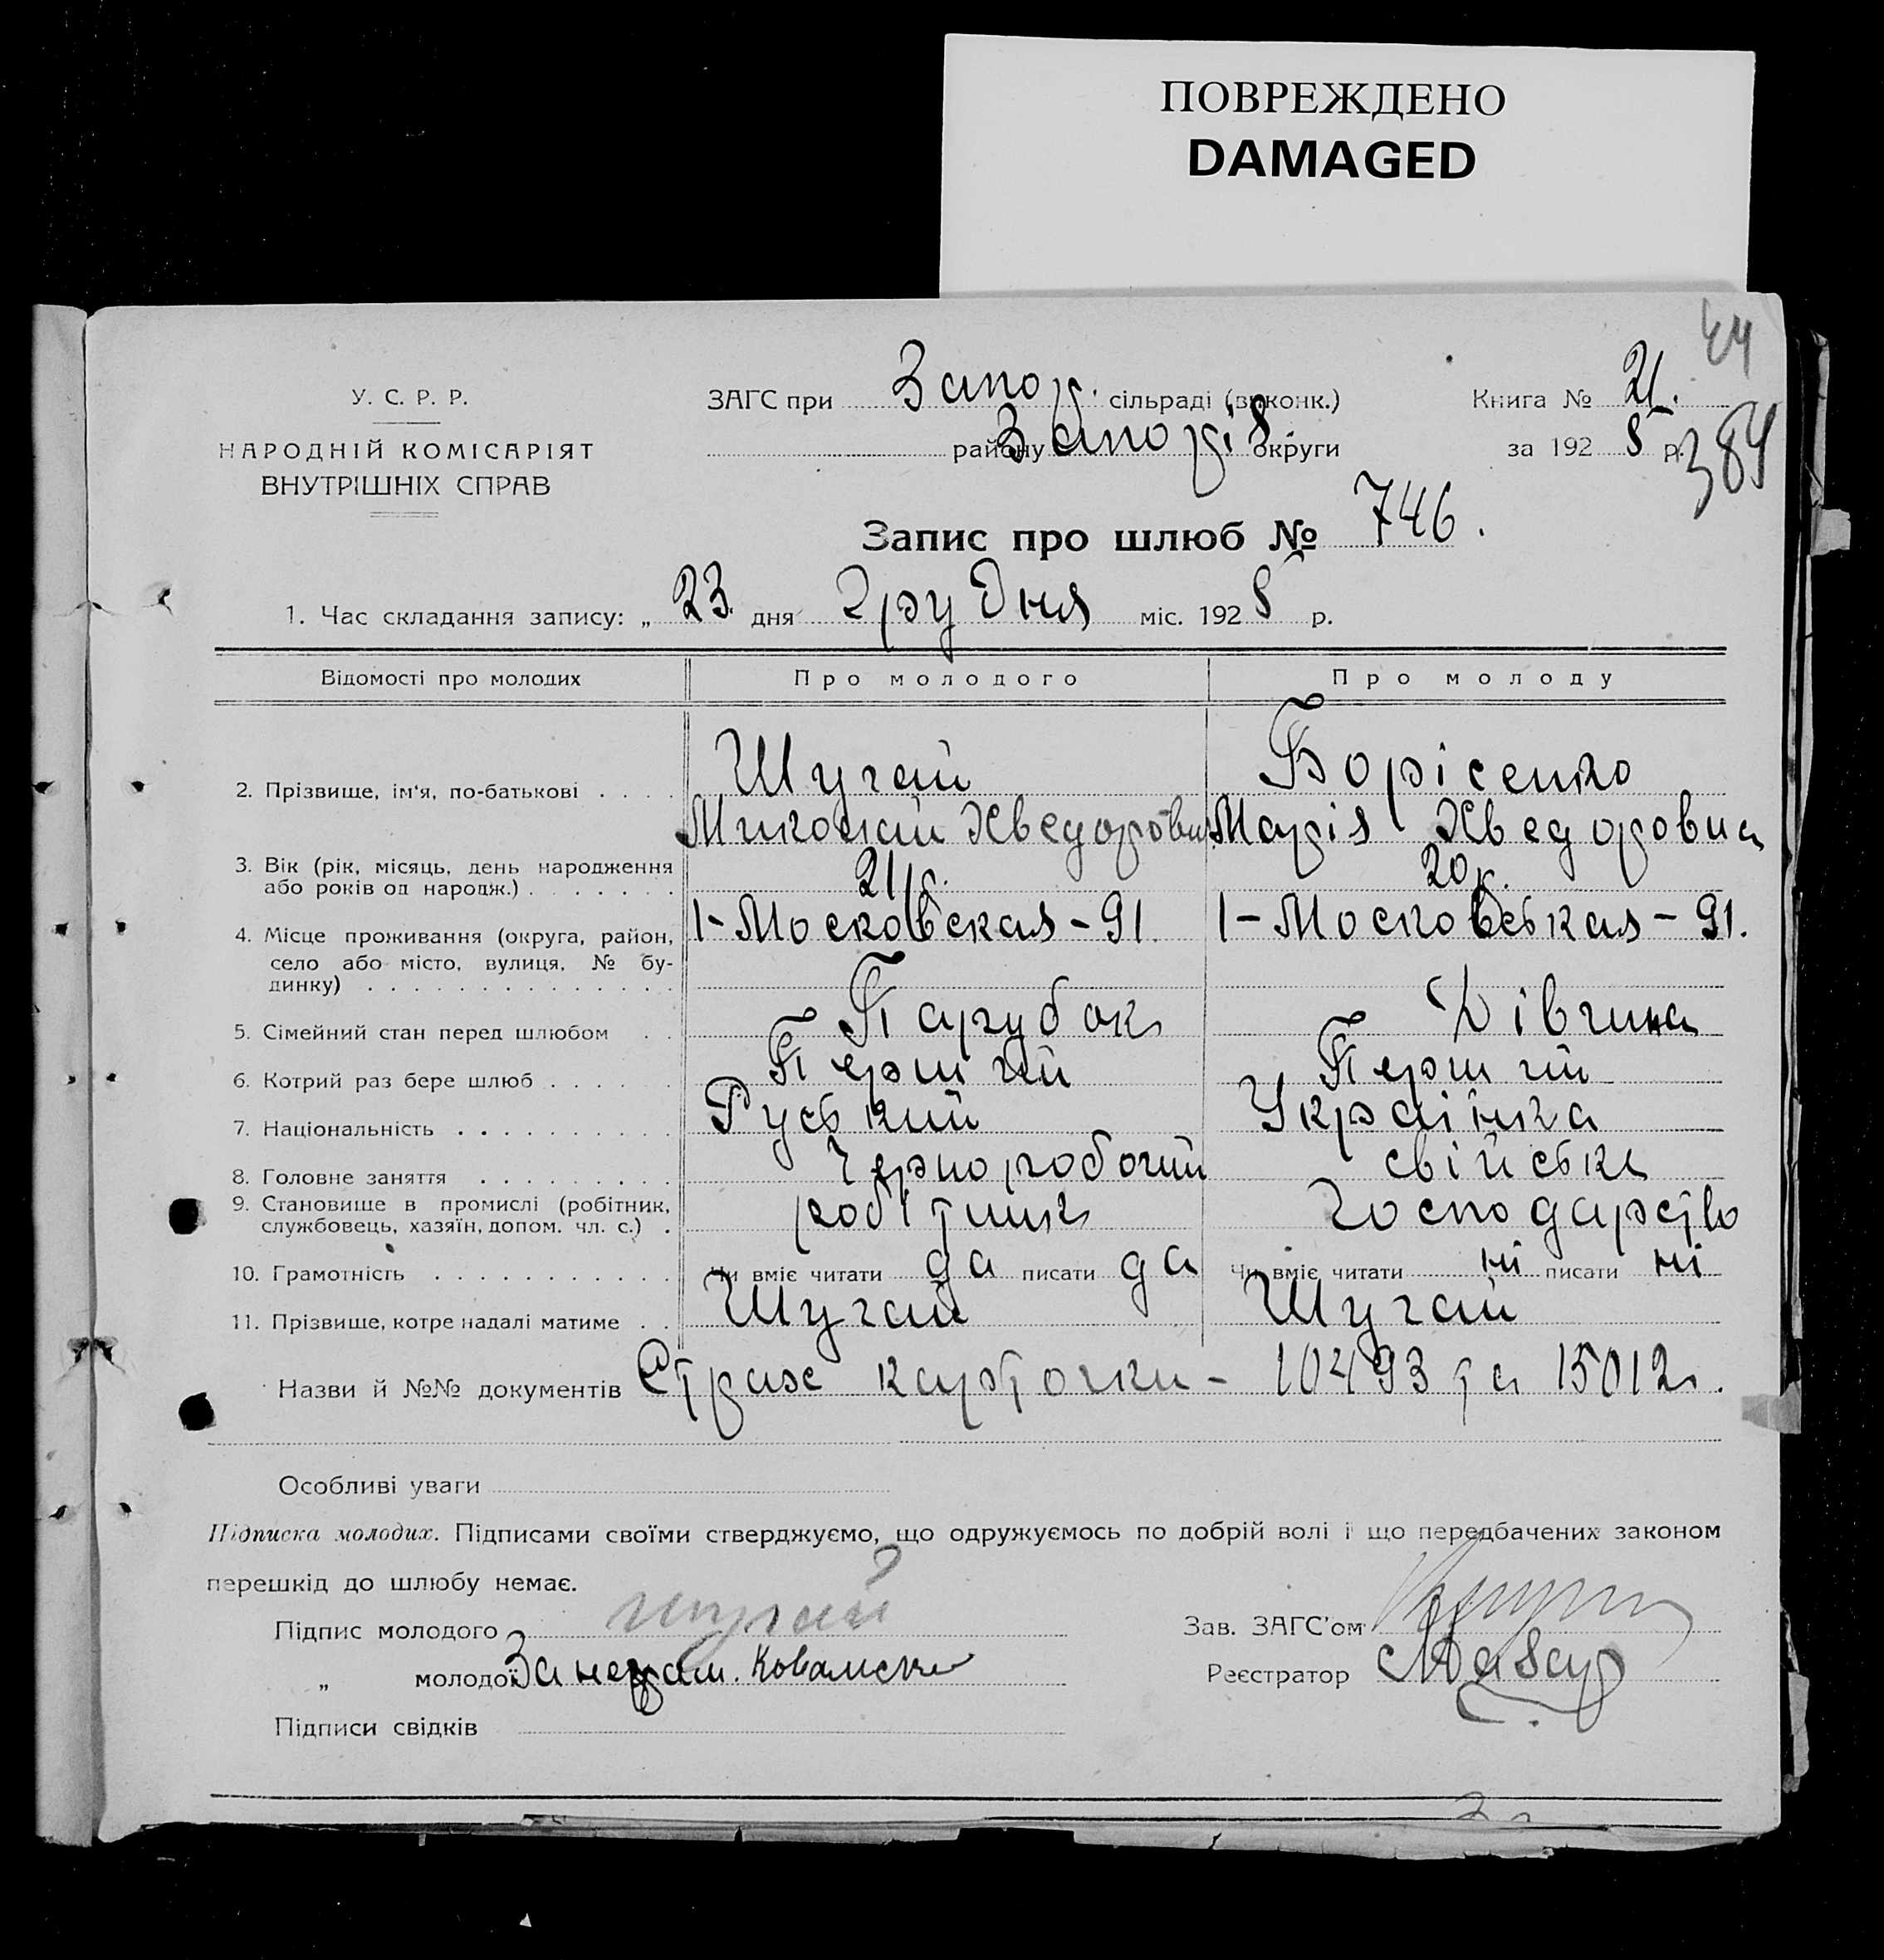 ПОВРЕЖДЕНО
DAMAGED
44
У. С. Р. Р.
НАРОДНІЙ КОМІСАРІЯТ
ВНУТРІШНІХ СПРАВ
ЗАГС при Запор. сільраді (виконк.)
району Запоріз. округи
Книга № 21.
за 1928 р.
384
Запис про шлюб № 746.
1. Час складання запису: „ 23 дня грудня міс. 1928 р.
Відомості про молодих Про молодого Про молоду
2. Прізвище, ім'я, по-батькові . . . . Шугай Борісенко
Миколай Хведорович Марія Хведоровна
3. Вік (рік, місяць, день народження
або років од народж.) . . . . . . . 21 р. 20 р.
4. Місце проживання (округа, район,
село або місто, вулиця, № бу-
динку) . . . . . . . . . . . . . .
1-Московская-91. 1-Московськая-91.
5. Сімейний стан перед шлюбом . . Парубок Дівчина
6. Котрий раз бере шлюб . . . . . Перший Перший
7. Національність . . . . . . . . . . Руський Українка
8. Головне заняття . . . . . . . . . Черноробочий свійське
9. Становище в промислі (робітник,
службовець, хазяїн, допом. чл. с.) . робітник господарство
10. Грамотність . . . . . . . . . . . Чи вміє читати да писати да Чи вміє читати ні писати ні
11. Прізвище, котре надалі матиме . . Шугай Шугай
Назви й №№ документів Страх карточки - 10493 та 15012.
Особливі уваги
Підписка молодих. Підписами своїми стверджуємо, що одружуємось по добрій волі і що передбачених законом
перешкід до шлюбу немає.
Підпис молодого Шугай
Зав. ЗАГС'ом
„ молодої За неграм.
Реєстратор
Підписи свідків